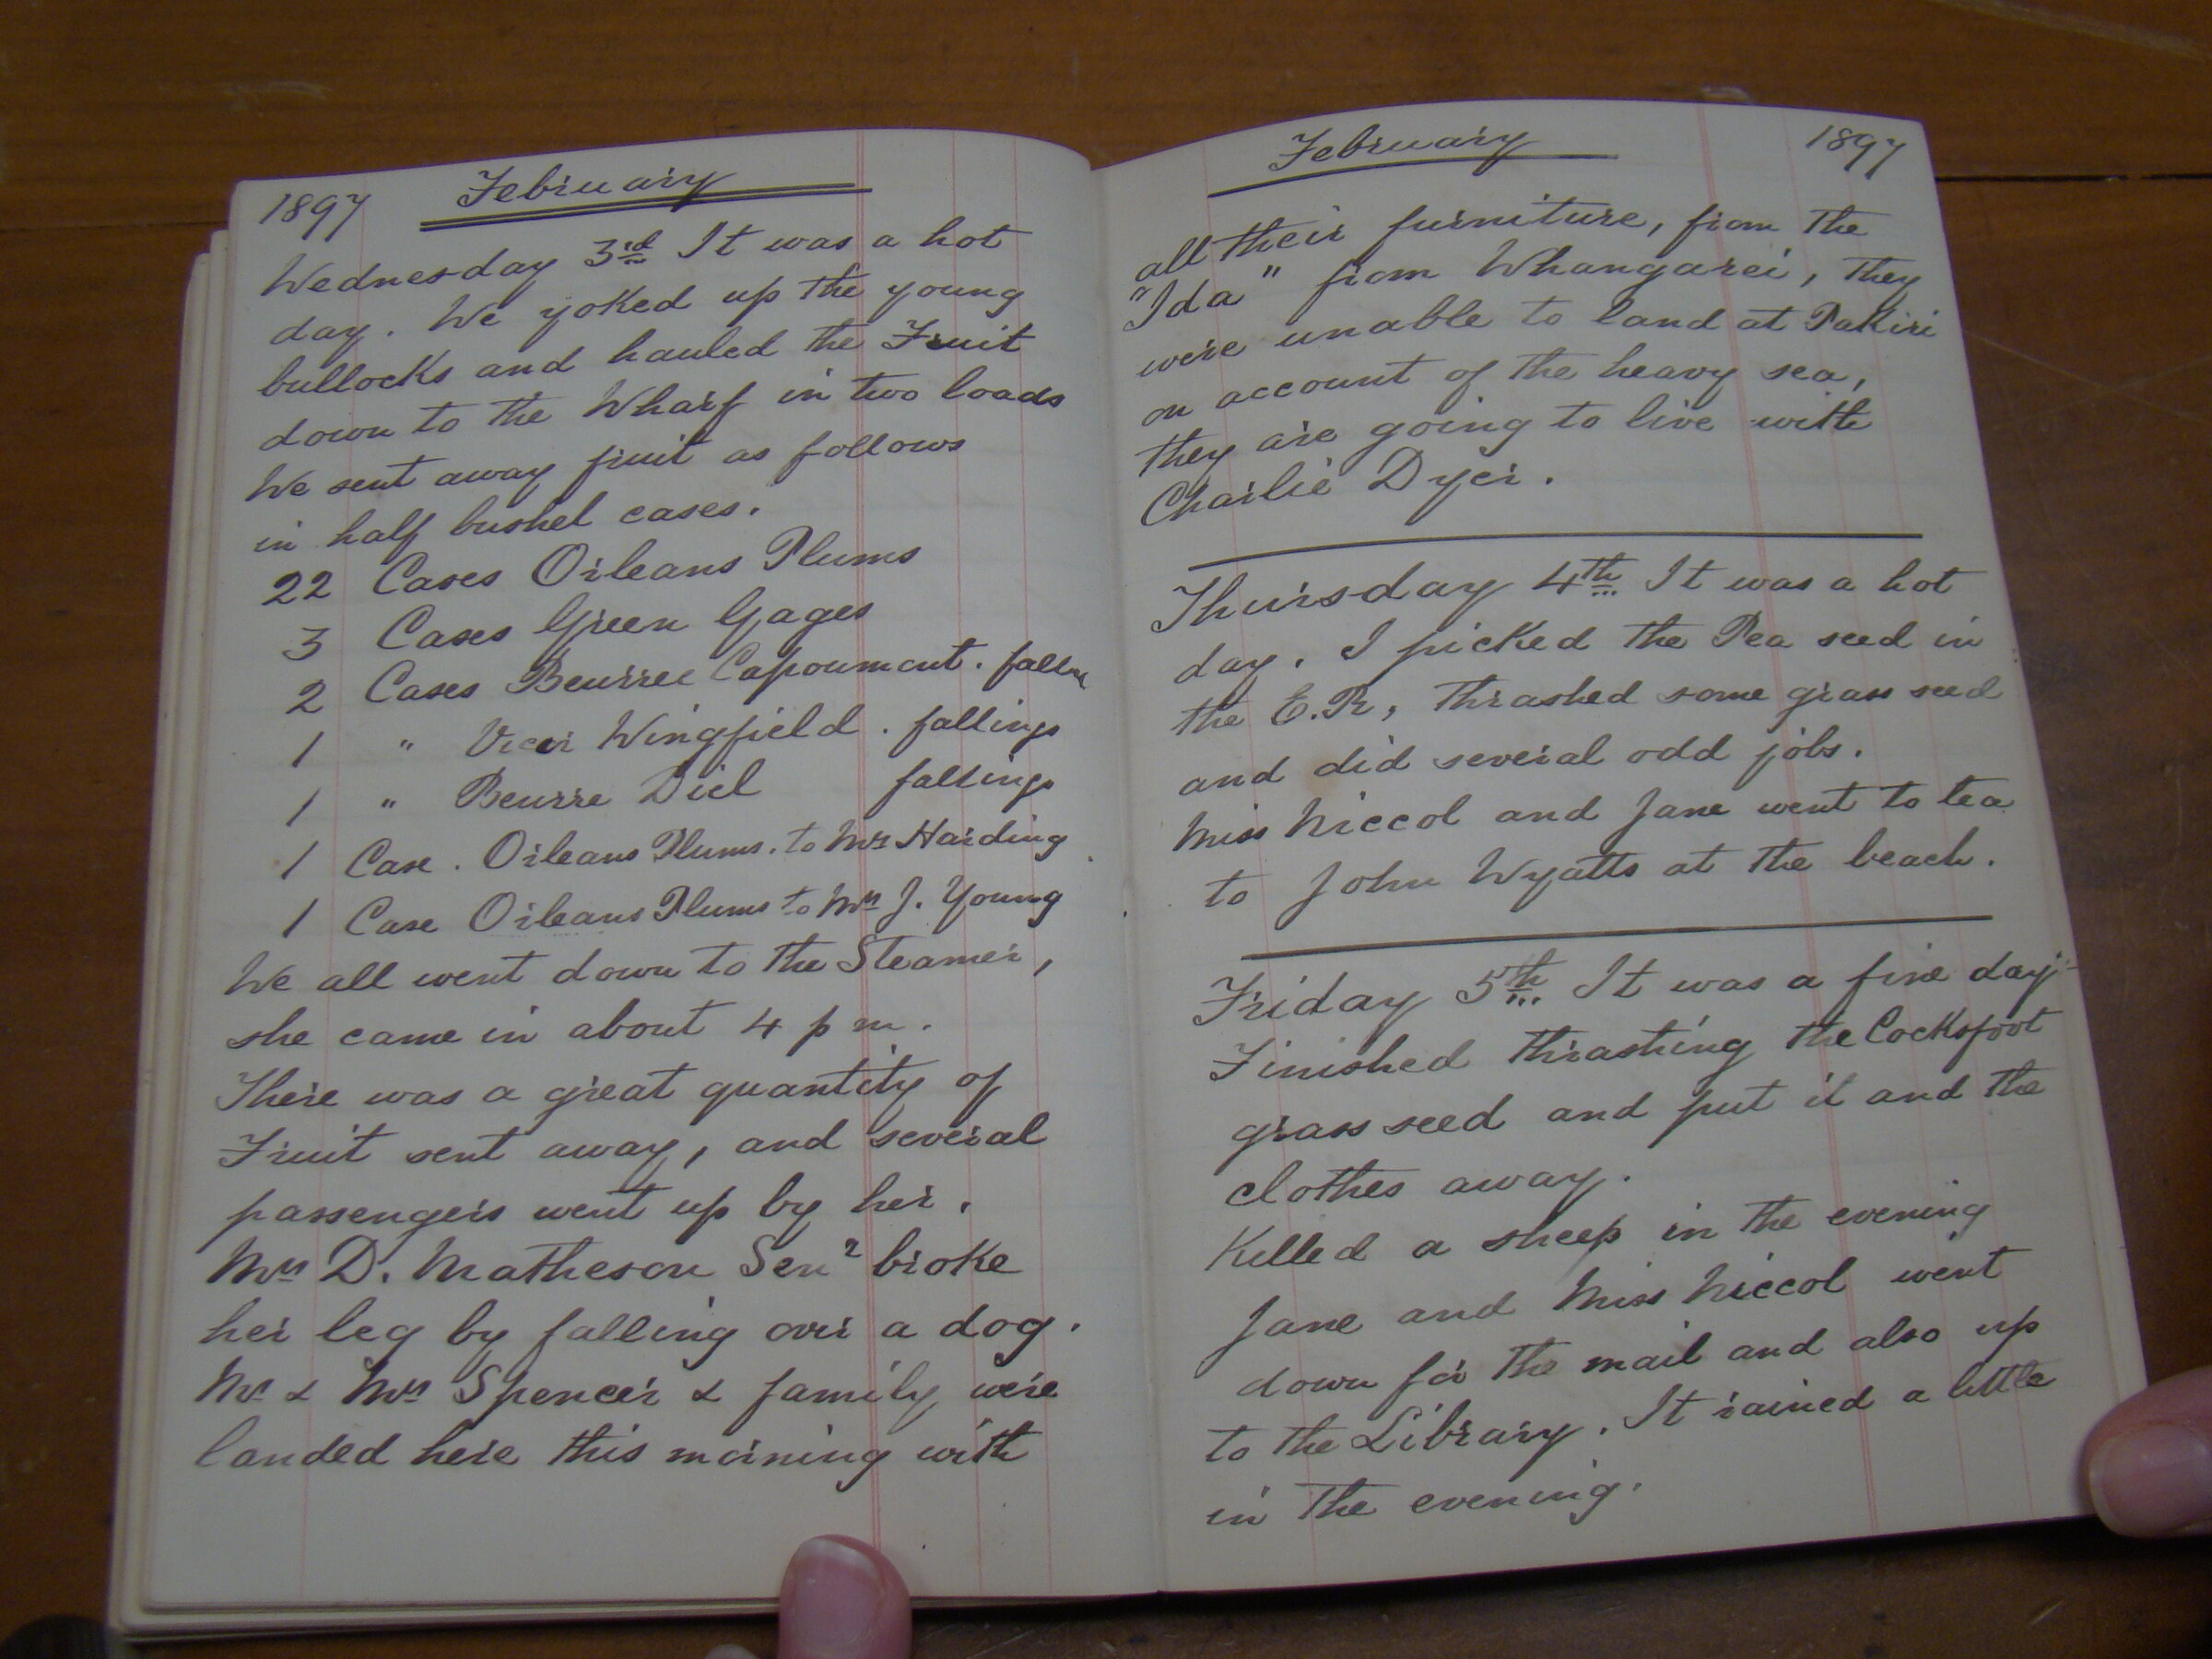 1897 February
Wednesday 3rd It was a hot
day. We yoked up the young
bullocks and hauled the Fruit
down to the Wharf in two loads
We sent away fruit as follows
in half bushel cases.
22 Cases Orleans Plums
3 Cases Green Gages
2 Cases Beurree Capoumont. fallin
1 " Vicar Wingfield. fallings
1 " Beurre Diel fallings
1 Case. Orleans Plums. to Mr Harding
1 Case Orleans Plums to Mrs J. Young
We all went down to the Steamer,
she came in about 4 p m.
There was a great quantity of
Fruit sent away, and several
passengers went up by her.
Mrs D. Matheson Senr broke
her leg by falling over a dog.
Mr & Mrs Spencer & family were
landed here this morning with
February 1897
all their furniture, from the
"Ida" from Whangarei, they
were unable to land at Pakiri
on account of the heavy sea,
they are going to live with
Charlie Dyer.
Thursday 4th It was a hot
day. I picked the Pea seed in
the E.R, thrashed some grass seed
and did several odd jobs.
Miss Niccol and Jane went to tea
to John Wyatts at the beach.
Friday 5th It was a fine day
Finished thrashing the Cocksfoot
grass seed and put it and the
clothes away.
Killed a sheep in the evening
Jane and Miss Niccol went
down for the mail and also up
to the Library. It rained a little
in the evening.